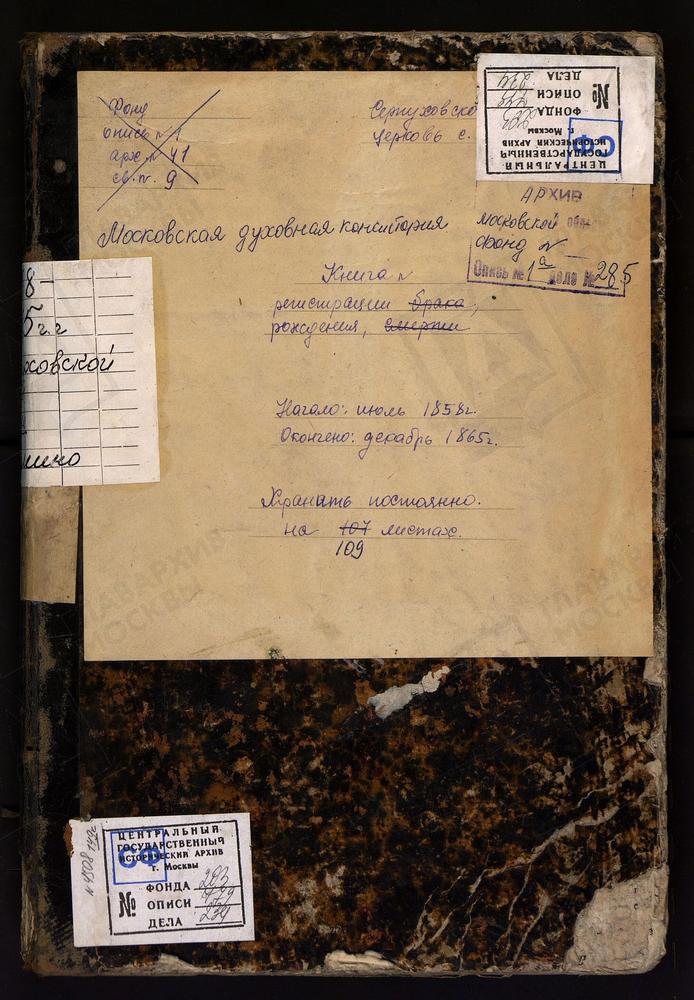 Фонд
опись № 1
арх. № 41
св. № 9
Серпуховско
церковь с.
ЦЕНТРАЛЬНЫЙ
ГОСУДАРСТВЕННЫЙ
ИСТОРИЧЕСКИЙ АРХИВ
г. Москвы
СФ
ФОНДА 203
№ ОПИСИ
ДЕЛА 234
АРХИВ
Московской обл.
фонд №
Опись № 1а дело № 285
Московская духовная консистория
Книга
регистрации брака,
рождения, смерти
Начало: июль 1858г.
Окончено: декабрь 1865г.
Хранить постоянно.
на 107 листах.
109
8-
5г.г
ховской
шино
ГЛАВАРХИВ
МОСКВЫ
ЦЕНТРАЛЬНЫЙ
ГОСУДАРСТВЕННЫЙ
ИСТОРИЧЕСКИЙ АРХИВ
г. Москвы
СФ
ФОНДА 203
№ ОПИСИ
ДЕЛА 234